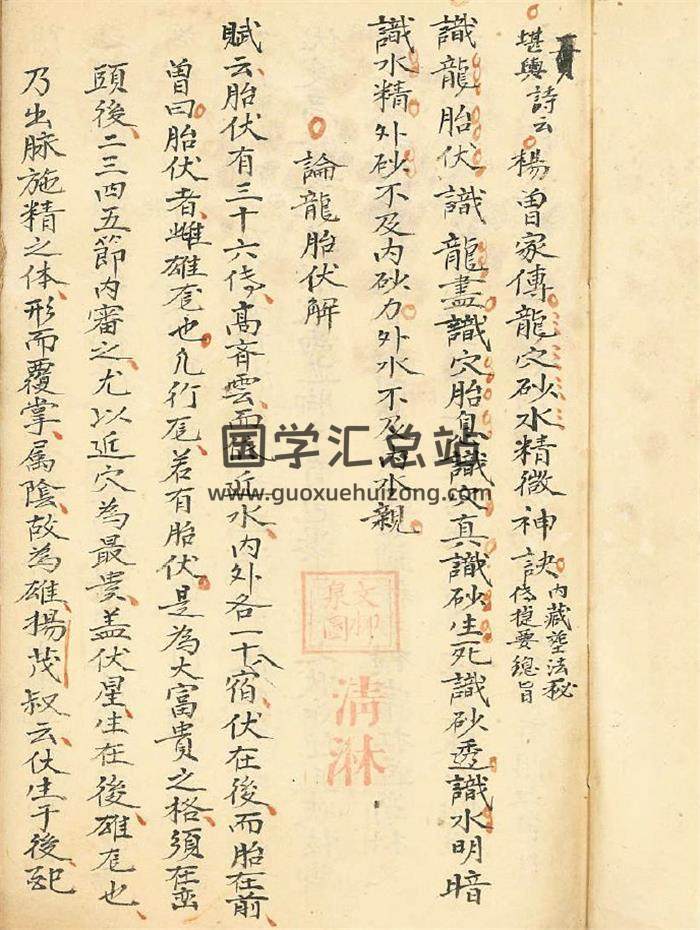 堪輿詩云 楊曾家傳龍穴砂水精微神訣 內藏塋法秘
傳捷要總旨
識龍胎伏識龍盡識穴胎息識穴真識砂生死識砂透識水明暗
識水精外砂不及內砂力外水不及內水親
論龍胎伏解
賦云胎伏有三十六傳高齊雲而低近水內外各一十八宿伏在後而胎在前
曾曰胎伏者雌雄也凡行若有胎伏是為大富貴之格須在巒
頭後二三四五節內審之尤以近穴為最貴盖伏星生在後雄也
乃出脉施精之体形而覆掌属陰故為雄楊茂叔云伏生于後
国学汇总站
www.guoxuehuizong.com
清淋